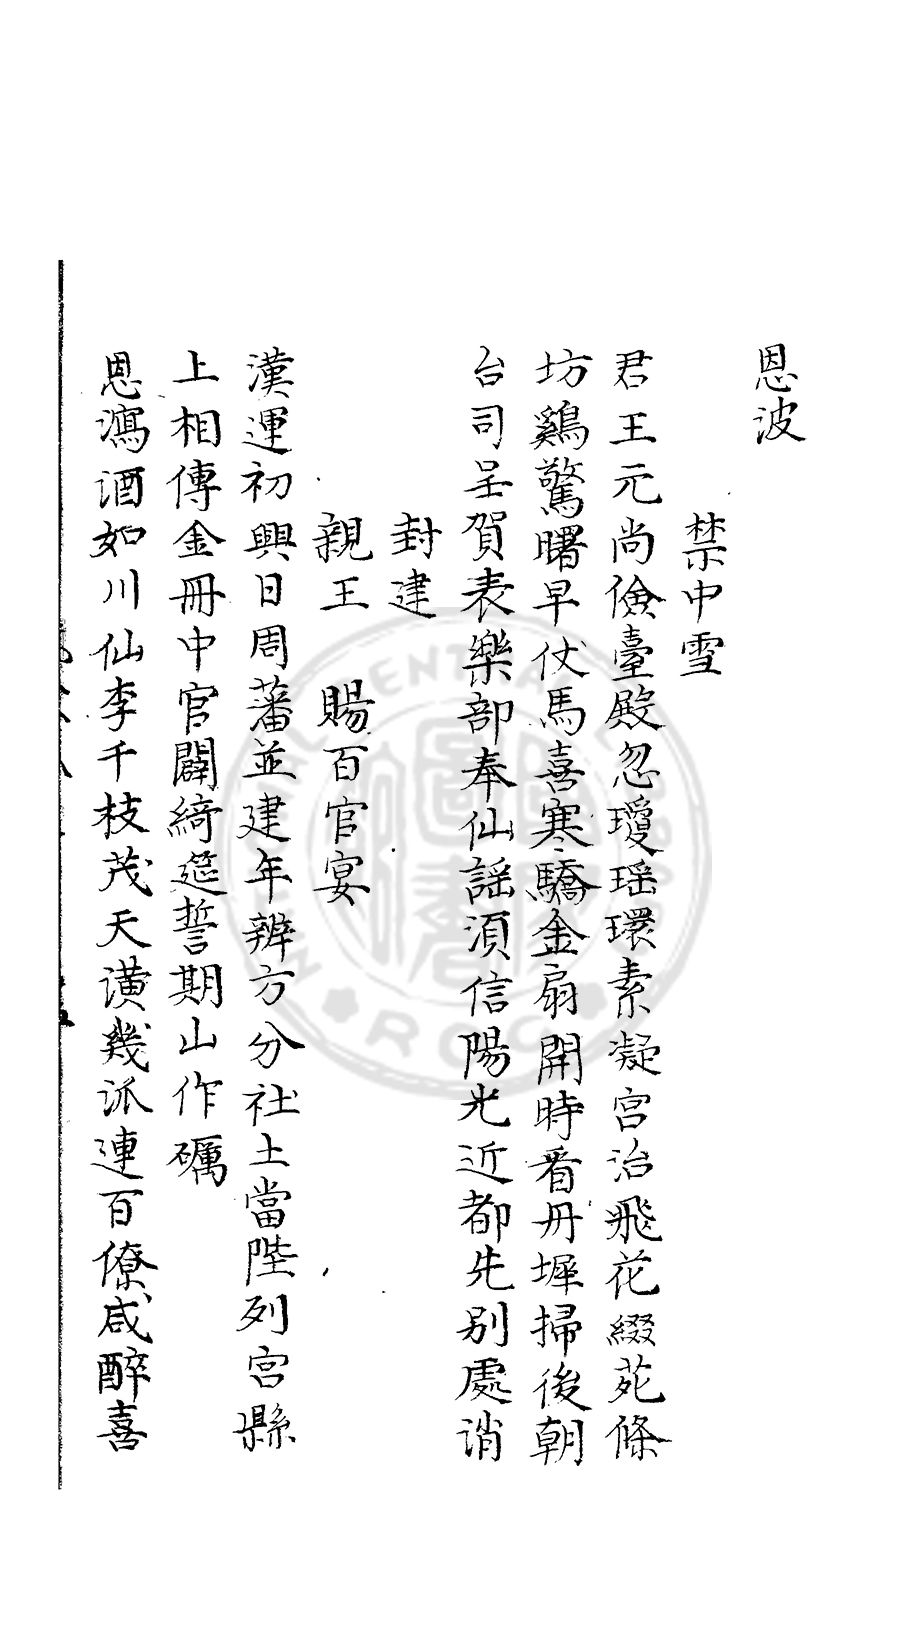 恩波
禁中雪
君王元尚儉臺殿忽瓊瑶環素凝宮治飛花綴苑條
坊鷄驚曙早仗馬喜寒驕金扇開時看丹墀掃後朝
台司呈賀表樂部奉仙謡須信陽光近都先别處消
封建
親王 賜百官宴
漢運初興日周藩並建年辨方分社土當陛列宮縣
上相傳金冊中官闢綺筵誓期山作礪
恩瀉酒如川仙李千枝茂天潢幾派連百僚咸醉喜